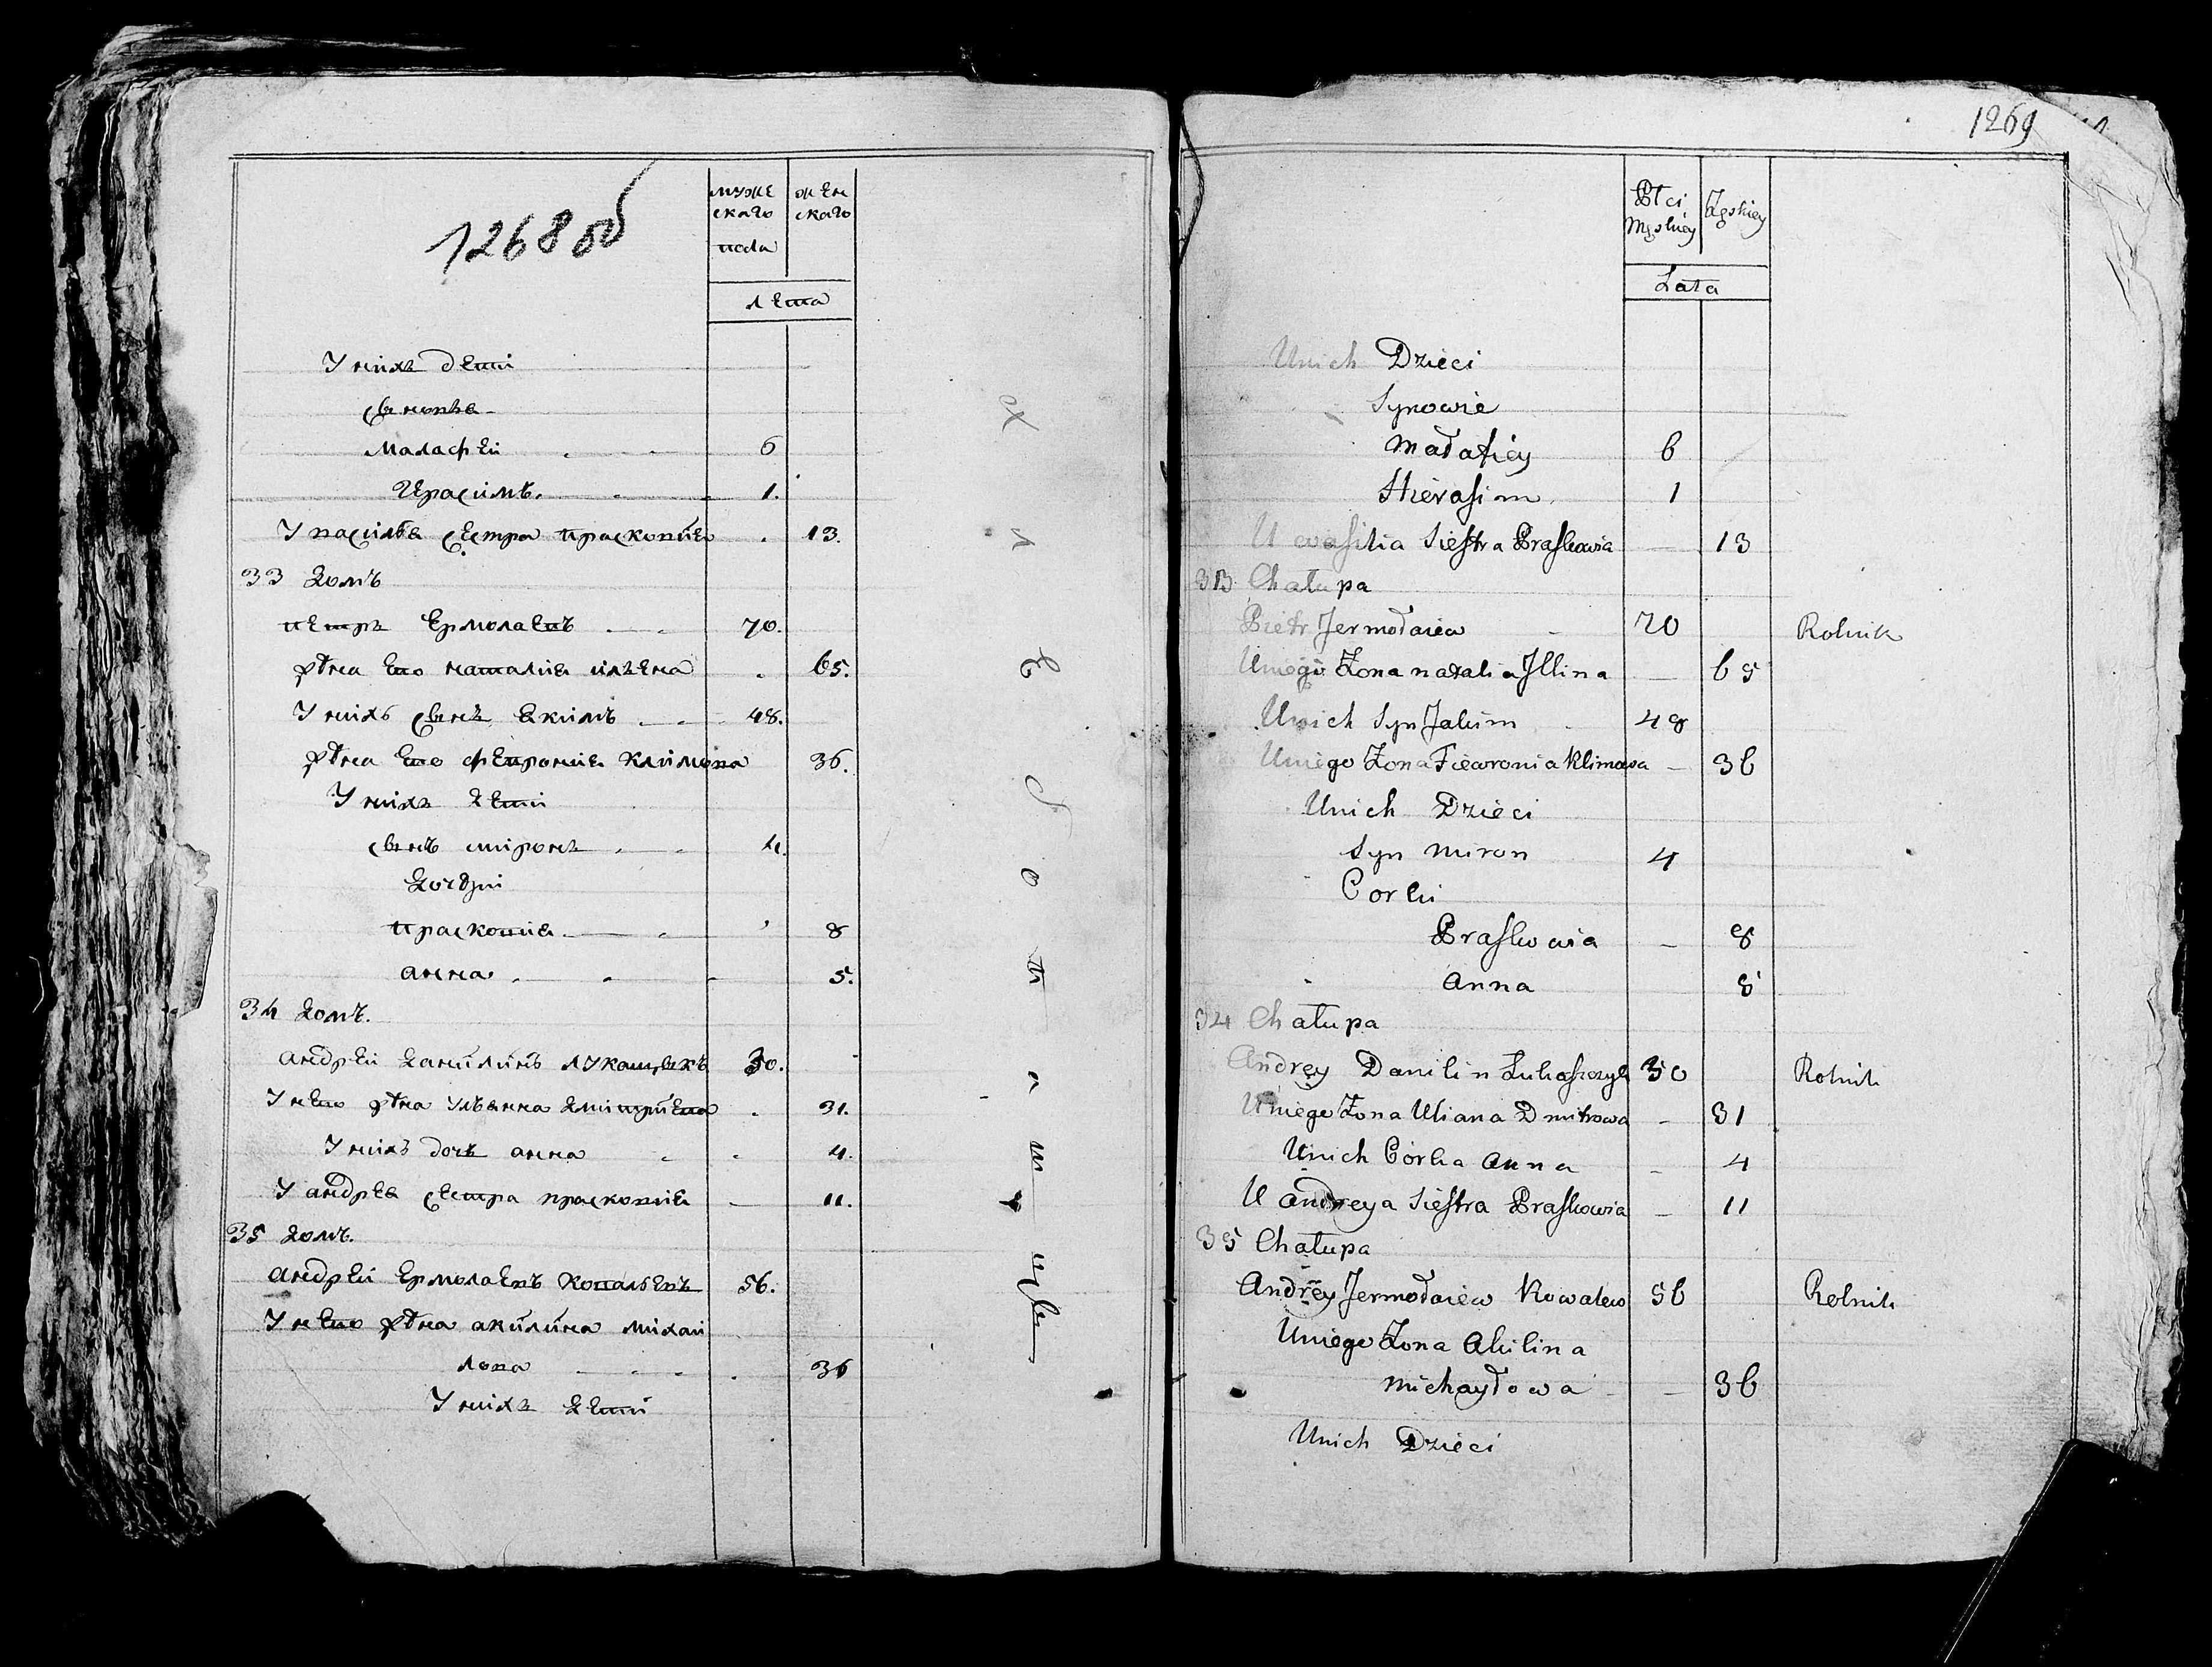 1268 об
муже
скаго
пола
жен
скаго
лета
У нихъ дети
сыновья
Маларфеи 6
Ерасимъ 1.
У василья сестра прасковия 13.
33 домъ
петръ Ермолаевъ 70.
жена Ево наталия ильена 65.
У нихъ сынъ Якимъ 48.
жена Ево феврония климова 36.
У нихъ дети
сынъ миронъ 4.
дочери
прасковия 8
анна 5.
34 домъ.
андреи данилинъ лукашыкъ 30.
У нево жена ульянна дмитриева 31.
У нихъ дочь анна 4.
У андрея сестра прасковия 11.
35 домъ.
андреи Ермолаевъ ковалевъ 56.
У нево жена акилина михаи
лова 36
У нихъ дети
1269
Płci
Męskiey
Żęskiey
Lata
Unich Dzieci
Synowie
Małafiey 6
Hierasim 1
U wasilia Siestra Praskowia — 13
33 Chałupa
Pietr Jermołaiew 70 Rolnik
Uniego Żona natalia Illina — 65
Unich Syn Jakim 48
Uniego Żona Fiewronia Klimowa — 36
Unich Dzieci
Syn Miron 4
Corki
Praskowia — 8
Anna 5
34 Chałupa
Andrey Danilin Łukaszyk 30 Rolnik
Uniego Żona Uliana Dmitrowa — 31
Unich Córka Anna — 4
U Andreya Siestra Praskowia — 11
35 Chałupa
Andrey Jermołaiew Kowalew 56 Rolnik
Uniego Żona Akilina
Michayłowa — 36
Unich Dzieci